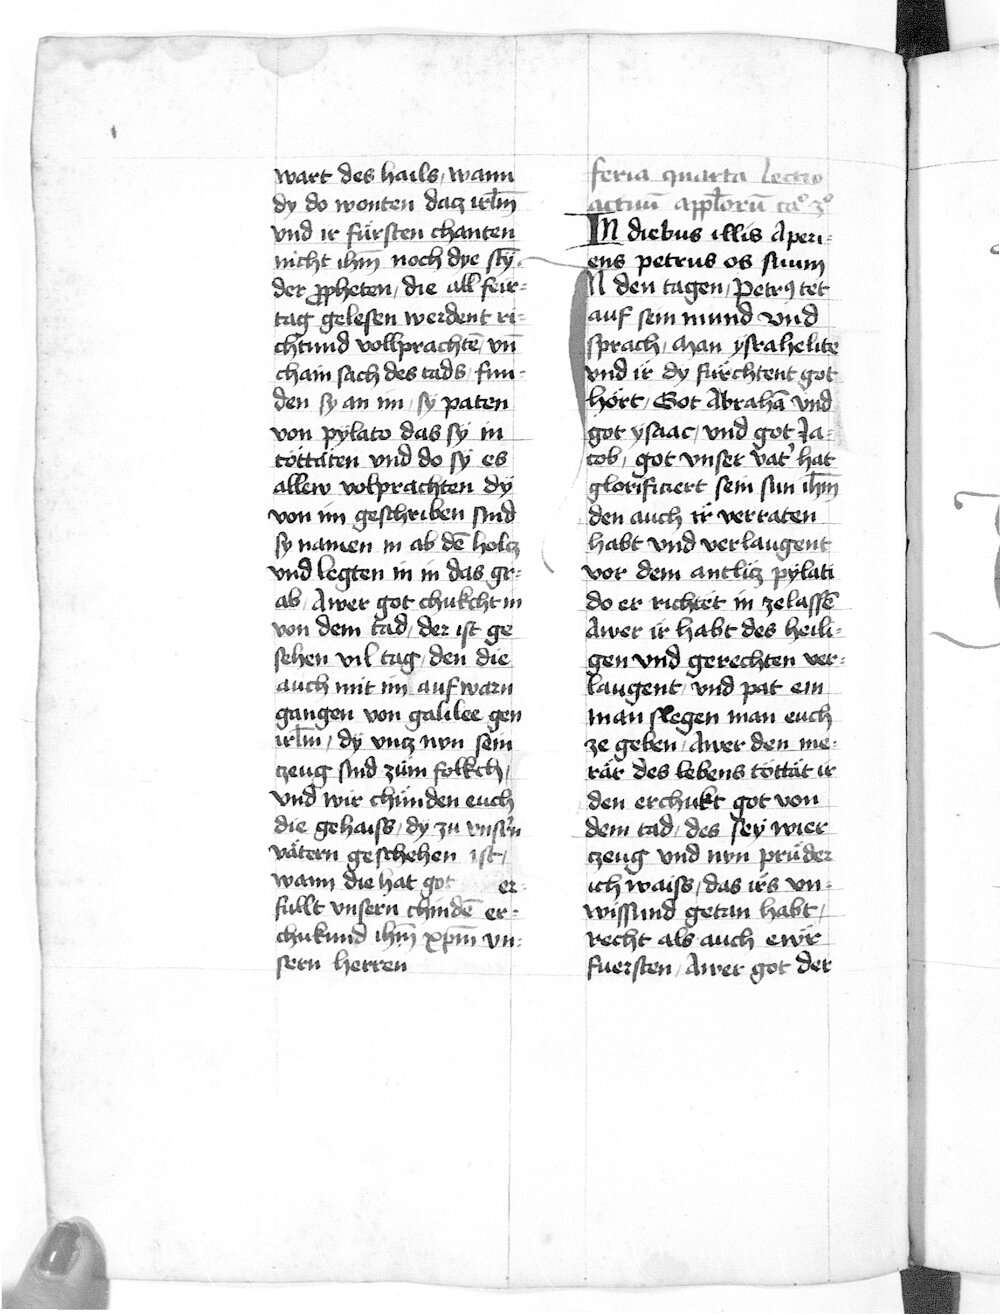 wart des hails, wann
dy do wonten dacz irlm̄
vnd ir fürsten chanten
nicht ihm̄ noch dye stȳ-
der ꝓpheten, die all feir-
tag gelesen werdent ri-
chtund vollprachtē, vn̄
chain sach des tads, fun-
den sy an im, sy paten
von pylato das sy in
töttäten vnd do sy es
allew volprachten dy
von im geschriben sind
sy namen in ab dē holcz
vnd legten in in das gr-
ab, Awer got chukcht in
von dem tad, der ist ge
sehen vil tag, den die
auch mit im auf warn
gangen von galilee gen
irlm̄, dy vncz nvn sein
czeug sind züm folkch,
vnd wir chünden euch
die gehaiss, dy zu vnsern
vätern geschehen ist,
wann die hat got er-
fullt vnsern chindē er-
chukund ihm̄ xpm̄ vn-
sern herren
feria quarta lectio
actuū appl̄orū ca° 3°
IN diebus illis Aperi-
ens petrus os suum
IN den tagen, Petrꝰ tet
auf sein mund vnd
sprach, Man ysrahelite
vnd ir dy fürchtent got
hört, Got Abrahā vnd
got ysaac, vnd got Ja-
cob, got vnser vat' hat
glorificiert sein sun ihm̄
den auch ir verraten
habt vnd verlaugent
vor dem antlicz pylati
do er richtet in zelassē
Awer ir habt des heili-
gen vnd gerechten ver-
laugent, vnd pat ein
man slegen man euch
ze geben, Awer den me-
rär des lebens töttät ir
den erchukt got von
dem tad, des sey wier
czeug vnd nvn prüder
ich waiss, das irs vn-
wissund getan habt,
recht als auch ewr
fuersten, Awer got der